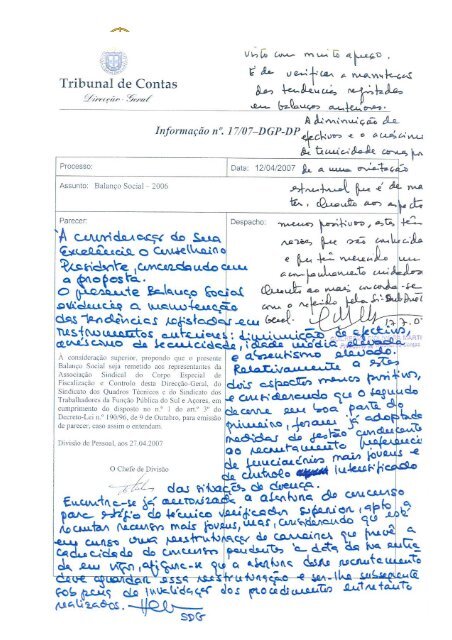 Tribunal de Contas
Direcção - Geral
Informação nº. 17/07–DGP-DP
Processo:
Data: 12/04/2007
Assunto: Balanço Social – 2006
Parecer:
À consideração do Sua
Excelência o Conselheiro
Presidente, concordando com
a proposta.
O presente Balanço Social
evidencia a manutenção
das tendências registadas em
instrumentos anteriores: diminuição de efectivos,
acréscimo de tecnicidade, idade média elevada
e absentismo elevado.
Relativamente a estes
dois aspectos menos positivos,
e considerando que o segundo
decorre em boa parte do
primeiro, foram já adoptadas
medidas de gestão conducentes
ao recrutamento preferencial
de funcionários mais jovens e
de controlo intensificado
das situações de doença.
A consideração superior, propondo que o presente
Balanço Social seja remetido aos representantes da
Associação Sindical do Corpo Especial de
Fiscalização e Controlo desta Direcção-Geral, do
Sindicato dos Quadros Técnicos e do Sindicato dos
Trabalhadores da Função Pública do Sul e Açores, em
cumprimento do disposto no nº 1 do artº 3º do
Decreto-Lei nº 190/96, de 9 de Outubro, para emissão
de parecer, caso assim o entendam.
Divisão de Pessoal, aos 27.04.2007
O Chefe de Divisão
Encontra-se já autorizada a abertura do concurso
para estágio de técnico verificador superior, apto a
recrutar recursos mais jovens, mas, considerando que está
em curso uma reestruturação de carreiras que prevê a
caducidade do concurso pendentes à data da sua entra-
da em vigor, afigura-se que a abertura desse recrutamento
deve aguardar essa reestruturação e ser-lhe subsequente
sob pena de invalidação dos procedimentos entretanto
realizados.
SDG
Despacho:
Visto com muito apreço.
É de verificar a manutenção
das tendências registadas
em balanços anteriores.
A diminuição de
efectivos e o acréscimo
de tecnicidade
de a uma orientação
estrutural que é de man-
ter. Quanto aos aspectos
menos positivos, estes têm
razões que são conhecidas
e que têm merecido um
acompanhamento cuidadoso
Quanto ao mais concorda-se
com o referido pela
Geral.